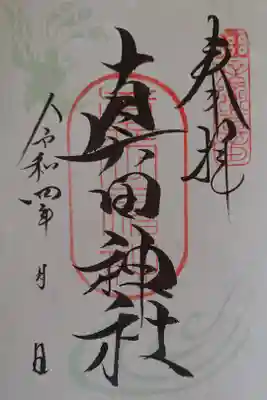 奉拝
真田神社
令和四年 月 日